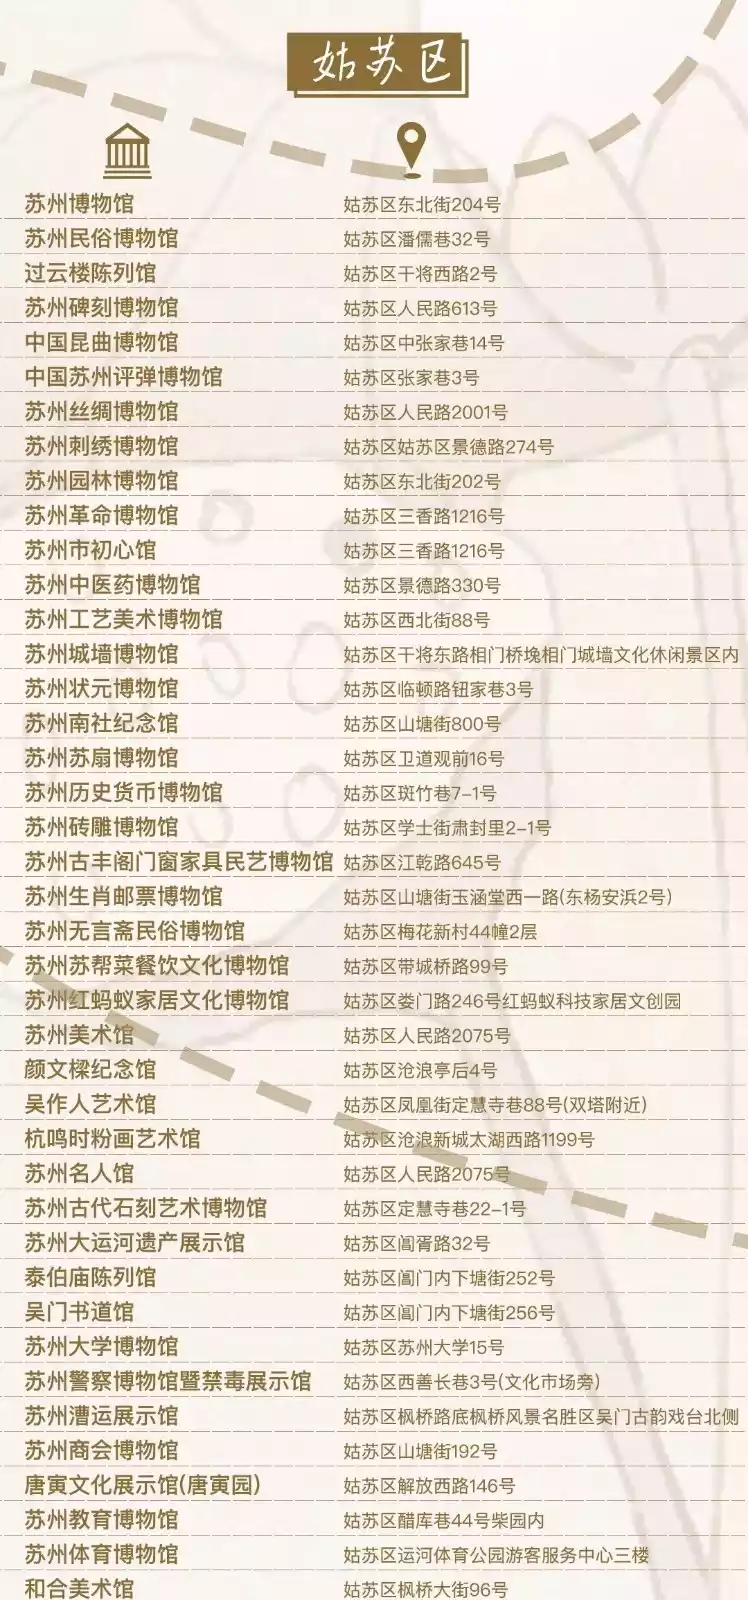 姑苏区
苏州博物馆 姑苏区东北街204号
苏州民俗博物馆 姑苏区潘儒巷32号
过云楼陈列馆 姑苏区干将西路2号
苏州碑刻博物馆 姑苏区人民路613号
中国昆曲博物馆 姑苏区中张家巷14号
中国苏州评弹博物馆 姑苏区张家巷3号
苏州丝绸博物馆 姑苏区人民路2001号
苏州刺绣博物馆 姑苏区姑苏区景德路274号
苏州园林博物馆 姑苏区东北街202号
苏州革命博物馆 姑苏区三香路1216号
苏州市初心馆 姑苏区三香路1216号
苏州中医药博物馆 姑苏区景德路330号
苏州工艺美术博物馆 姑苏区西北街88号
苏州城墙博物馆 姑苏区干将东路相门桥堍相门城墙文化休闲景区内
苏州状元博物馆 姑苏区临顿路钮家巷3号
苏州南社纪念馆 姑苏区山塘街800号
苏州苏扇博物馆 姑苏区卫道观前16号
苏州历史货币博物馆 姑苏区斑竹巷7-1号
苏州砖雕博物馆 姑苏区学士街肃封里2-1号
苏州古丰阁门窗家具民艺博物馆 姑苏区江乾路645号
苏州生肖邮票博物馆 姑苏区山塘街玉涵堂西一路(东杨安浜2号)
苏州无言斋民俗博物馆 姑苏区梅花新村44幢2层
苏州苏帮菜餐饮文化博物馆 姑苏区带城桥路99号
苏州红蚂蚁家居文化博物馆 姑苏区娄门路246号红蚂蚁科技家居文创园
苏州美术馆 姑苏区人民路2075号
颜文樑纪念馆 姑苏区沧浪亭后4号
吴作人艺术馆 姑苏区凤凰街定慧寺巷88号(双塔附近)
杭鸣时粉画艺术馆 姑苏区沧浪新城太湖西路1199号
苏州名人馆 姑苏区人民路2075号
苏州古代石刻艺术博物馆 姑苏区定慧寺巷22-1号
苏州大运河遗产展示馆 姑苏区阊胥路32号
泰伯庙陈列馆 姑苏区阊门内下塘街252号
吴门书道馆 姑苏区阊门内下塘街256号
苏州大学博物馆 姑苏区苏州大学15号
苏州警察博物馆暨禁毒展示馆 姑苏区西善长巷3号(文化市场旁)
苏州漕运展示馆 姑苏区枫桥路底枫桥风景名胜区吴门古韵戏台北侧
苏州商会博物馆 姑苏区山塘街192号
唐寅文化展示馆(唐寅园) 姑苏区解放西路146号
苏州教育博物馆 姑苏区醋库巷44号柴园内
苏州体育博物馆 姑苏区运河体育公园游客服务中心三楼
和合美术馆 姑苏区枫桥大街96号